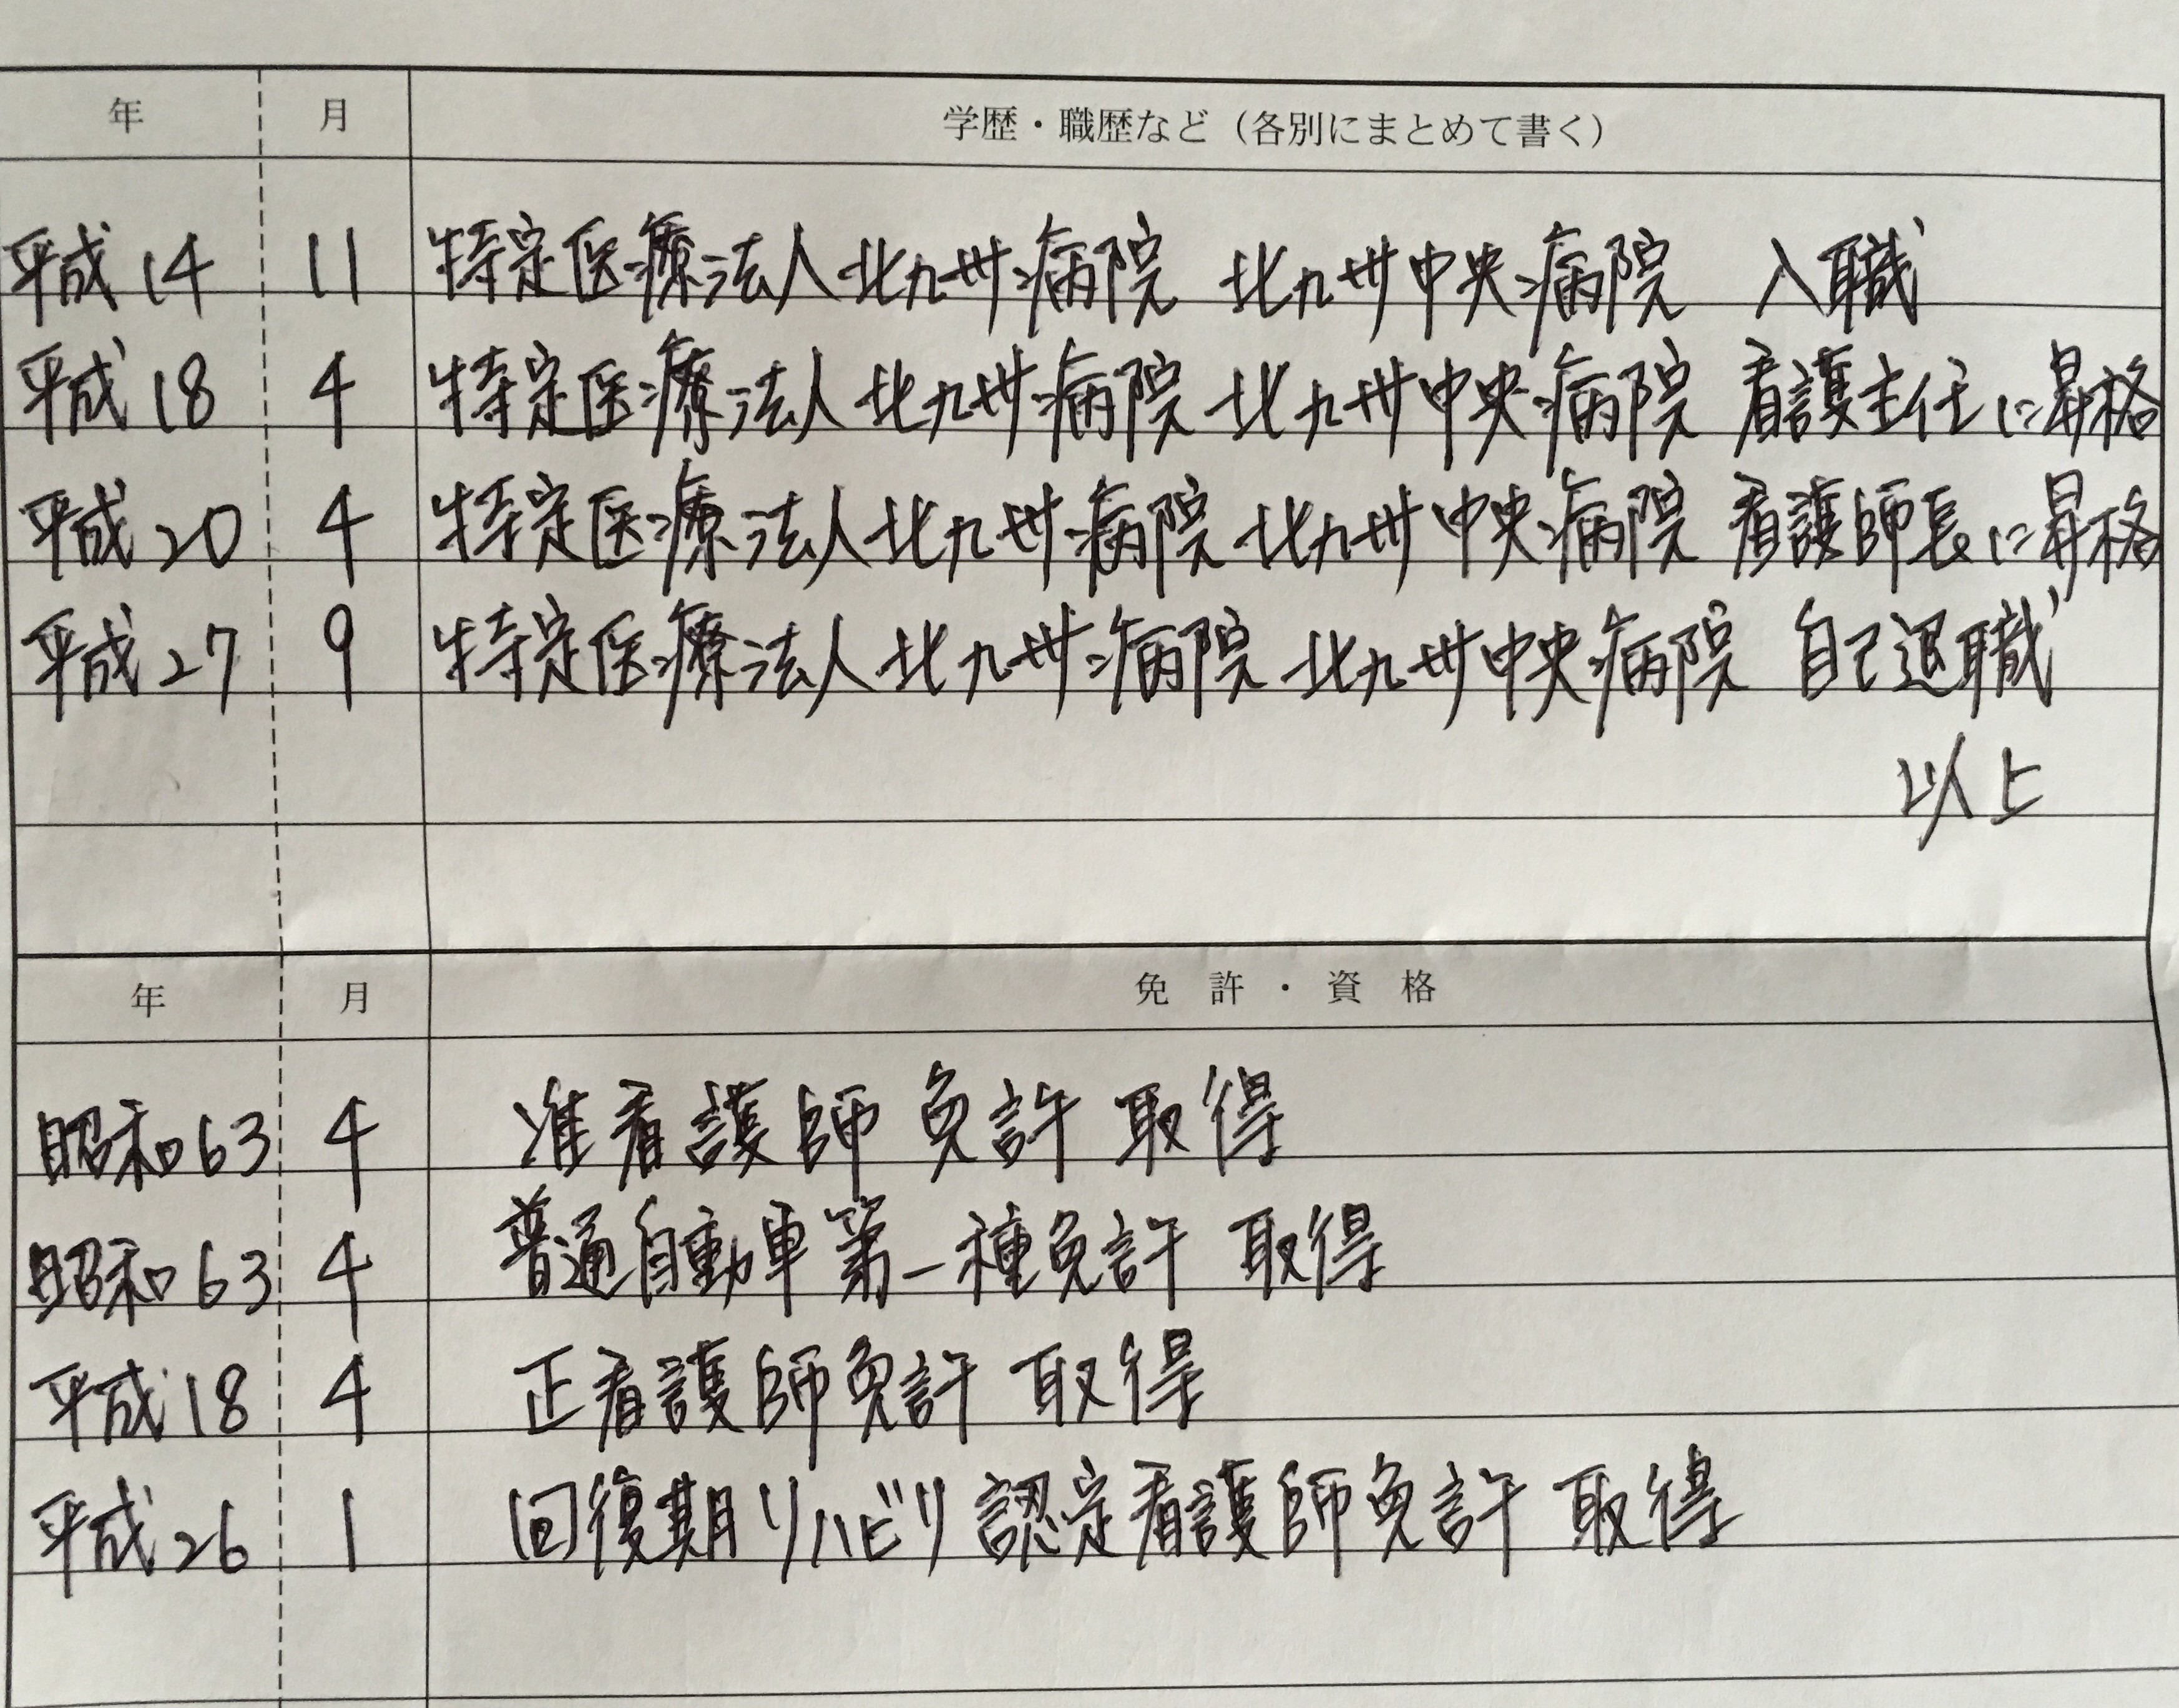 年 月 学歴・職歴など（各別にまとめて書く）
平成14 11 特定医療法人北九州病院 北九州中央病院 入職
平成18 4 特定医療法人北九州病院 北九州中央病院 看護主任に昇格
平成20 4 特定医療法人北九州病院 北九州中央病院 看護師長に昇格
平成27 9 特定医療法人北九州病院 北九州中央病院 自己退職
以上
年 月 免許・資格
昭和63 4 准看護師免許 取得
昭和63 4 普通自動車第一種免許 取得
平成18 4 正看護師免許 取得
平成26 1 回復期リハビリ認定看護師免許 取得